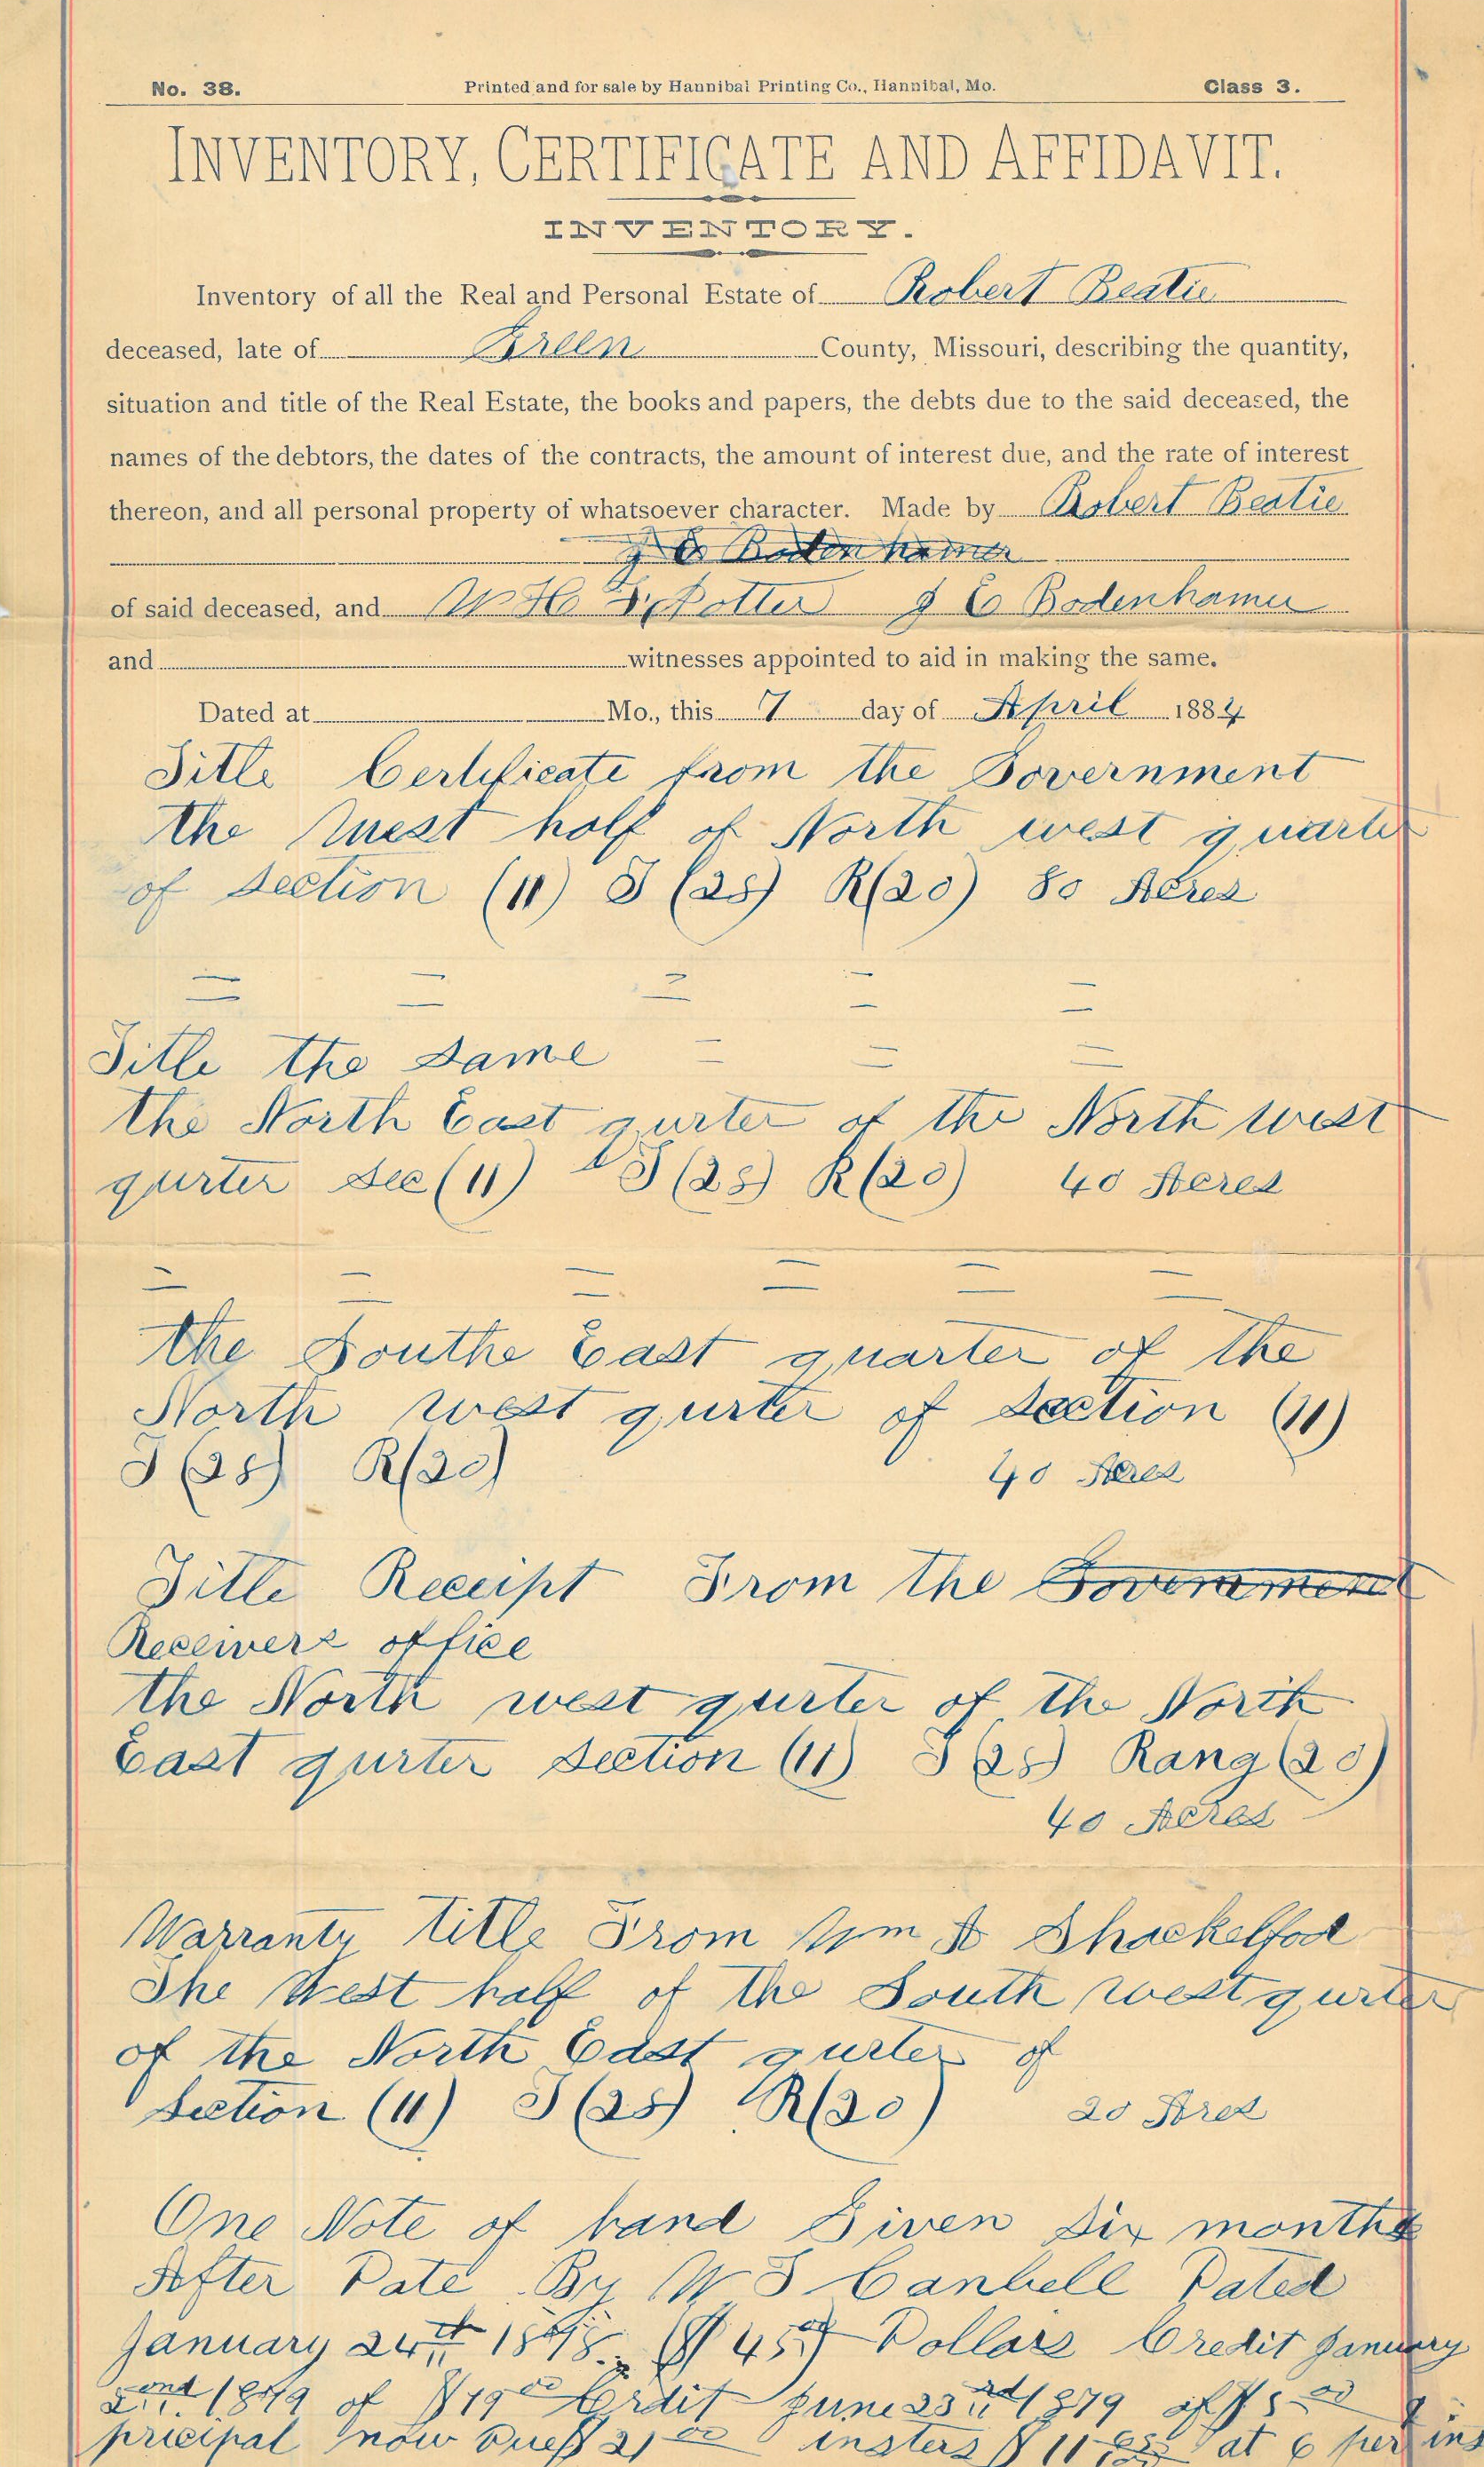 No. 38. Printed and for sale by Hannibal Printing Co., Hannibal, Mo. Class 3.
INVENTORY, CERTIFICATE AND AFFIDAVIT.
INVENTORY.
Inventory of all the Real and Personal Estate of Robert Beatie
deceased, late of Green County, Missouri, describing the quantity,
situation and title of the Real Estate, the books and papers, the debts due to the said deceased, the
names of the debtors, the dates of the contracts, the amount of interest due, and the rate of interest
thereon, and all personal property of whatsoever character. Made by Robert Beatie
J E Bodenhamer
of said deceased, and W H Potter J E Bodenhamer
and witnesses appointed to aid in making the same.
Dated at Mo., this 7 day of April 1884
Title Certificate from the Government
the West half of North west quarter
of Section (11) T (28) R(20) 80 Acres
= = = = =
Title the Same = = =
the North East qurter of the North west
qurter Sec (11) T (28) R(20) 40 Acres
= = = = = =
the Southe East quarter of the
North west qurter of Section (11)
T (28) R(20) 40 Acres
Title Receipt From the Government
Receivers office
the North west qurter of the North
East qurter Section (11) T (28) Rang (20)
40 Acres
Warranty title From Wm A Shackelfod
The West half of the South west qurter
of the North East qurter of
Section (11) T (28) R(20) 20 Ares
One Note of hand Given Six months
After Date By W T Canbell Dated
January 24th 1878. ($45.00) Dollars Credit January
2nd 1879 of $19 00 Crdit June 23rd 1879 of $5 00
pricipal now Due $21 00 insters $11 at 6 per ins